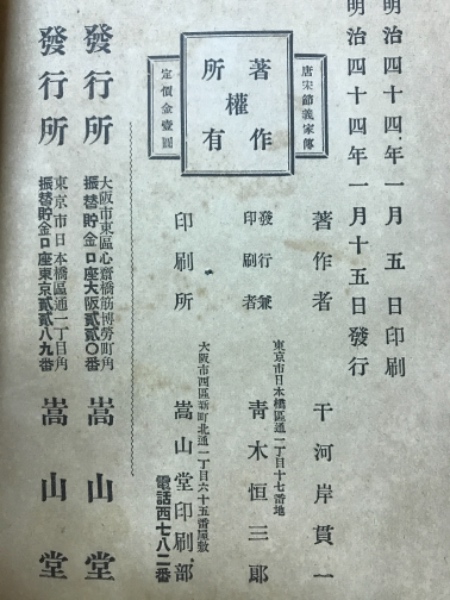 明治四十四年一月五日印刷
明治四十四年一月十五日發行
唐宋節義家傳
著作權所有
定價金壹圓
著作者 干河岸貫一
東京市日本橋區通一丁目十七番地
發行兼印刷者 青木恒三郎
大阪市西區新町北通一丁目六十五番屋敷
印刷所 嵩山堂印刷部
電話西七八二番
大阪市東區心齋橋筋博勞町角
發行所 嵩山堂
振替貯金口座大阪貳貳〇番
東京市日本橋區通一丁目角
發行所 嵩山堂
振替貯金口座東京貳貳八九番